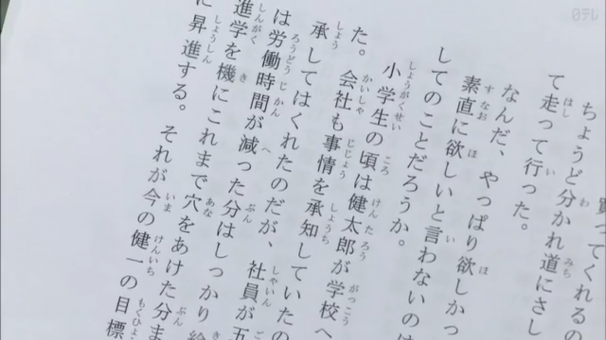 日テレ
買ってくれるの
ちょうど分かれ道にさし
て走って行った。
なんだ、やっぱり欲しかっ
素直に欲しいと言わないのは
してのことだろうか。
小学生の頃は健太郎が学校へ
た。会社も事情を承知していたの
承してはくれたのだが、社員が五
は労働時間が減った分はしっかり給
進学を機にこれまで穴をあけた分ま
に昇進する。それが今の健一の目標